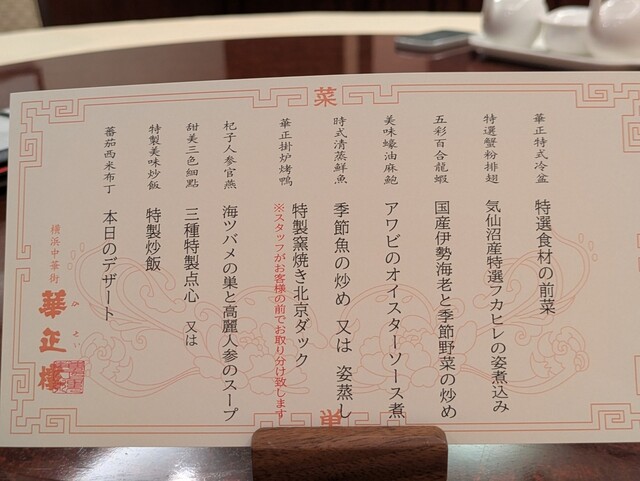 菜
華正特式冷盆 特選食材の前菜
特選蟹粉排翅 気仙沼産特選フカヒレの姿煮込み
五彩百合龍蝦 国産伊勢海老と季節野菜の炒め
美味蠔油麻鮑 アワビのオイスターソース煮
時式清蒸鮮魚 季節魚の炒め 又は 姿蒸し
華正掛炉烤鴨 特製窯焼き北京ダック
※スタッフがお客様の前でお取り分け致します
杞子人参官燕 海ツバメの巣と高麗人参のスープ
甜美三色細點 三種特製点心 又は
特製美味炒飯 特製炒飯
蕃茄西米布丁 本日のデザート
横浜中華街
華正樓
単